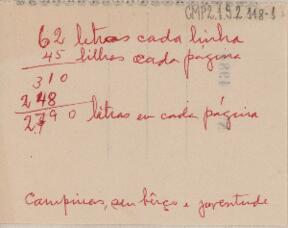 CMP2.1.9.2 118-1
62 letras cada linha
45 lilhas cada página
310
248
2790 letras em cada página
Campinas, seu bêrço e juventude